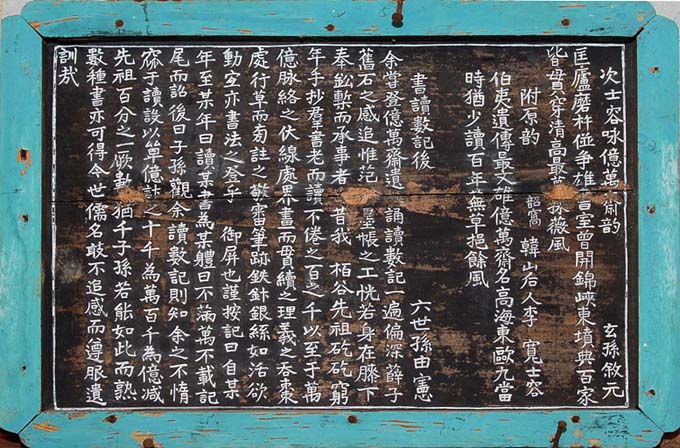 次士容咏億萬齋韵 玄孫敘元
匡廬磨杵並爭雄書室曾開錦峽東墳典百家
皆貫穿清高最 採薇風
附原韵 韶窩 韓山后人李寬士容
伯夷遺傳最文雄億萬齋名高海東歐九當
時猶少讀百年無草挹餘風
書讀數記後 六世孫由憲
余嘗登億萬齋遺 誦讀數記一遍偏深薛子
舊石之感追惟范 墨帳之工恍若身在膝下
奉鉛槧而承事者 昔我 栢谷先祖矻矻窮
年手抄羣書老而讀不倦之百之千以至于萬
億脉絡之伏線處界畫而毌續之理義之吞棗
處行草而旁註之敬審筆跡鉄針銀絲如活欲
動宜亦書法之登乎 御屏也謹按記曰自某
年至某年曰讀某書為某軆曰不滿萬不載記
尾而詒後曰子孫觀余讀數記則知余之不惰
窳于讀設以筭億計之十千為萬百千為億减
先祖百分之一厥數猶千子孫若能如此而熟
數種書亦可得今世儒名敢不追感而遵服遺
訓哉